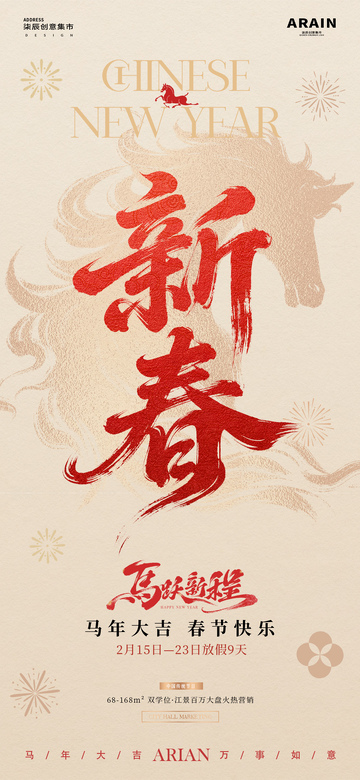 ADDRESS
柒辰创意集市
DESIGN
ARAIN
CHINESE
NEW YEAR
新春
馬跃新程
HAPPY NEW YEAR
马年大吉 春节快乐
2月15日—23日放假9天
68-168m² 双学位·江景百万大盘火热营销
马/年/大/吉 ARIAN 万/事/如/意